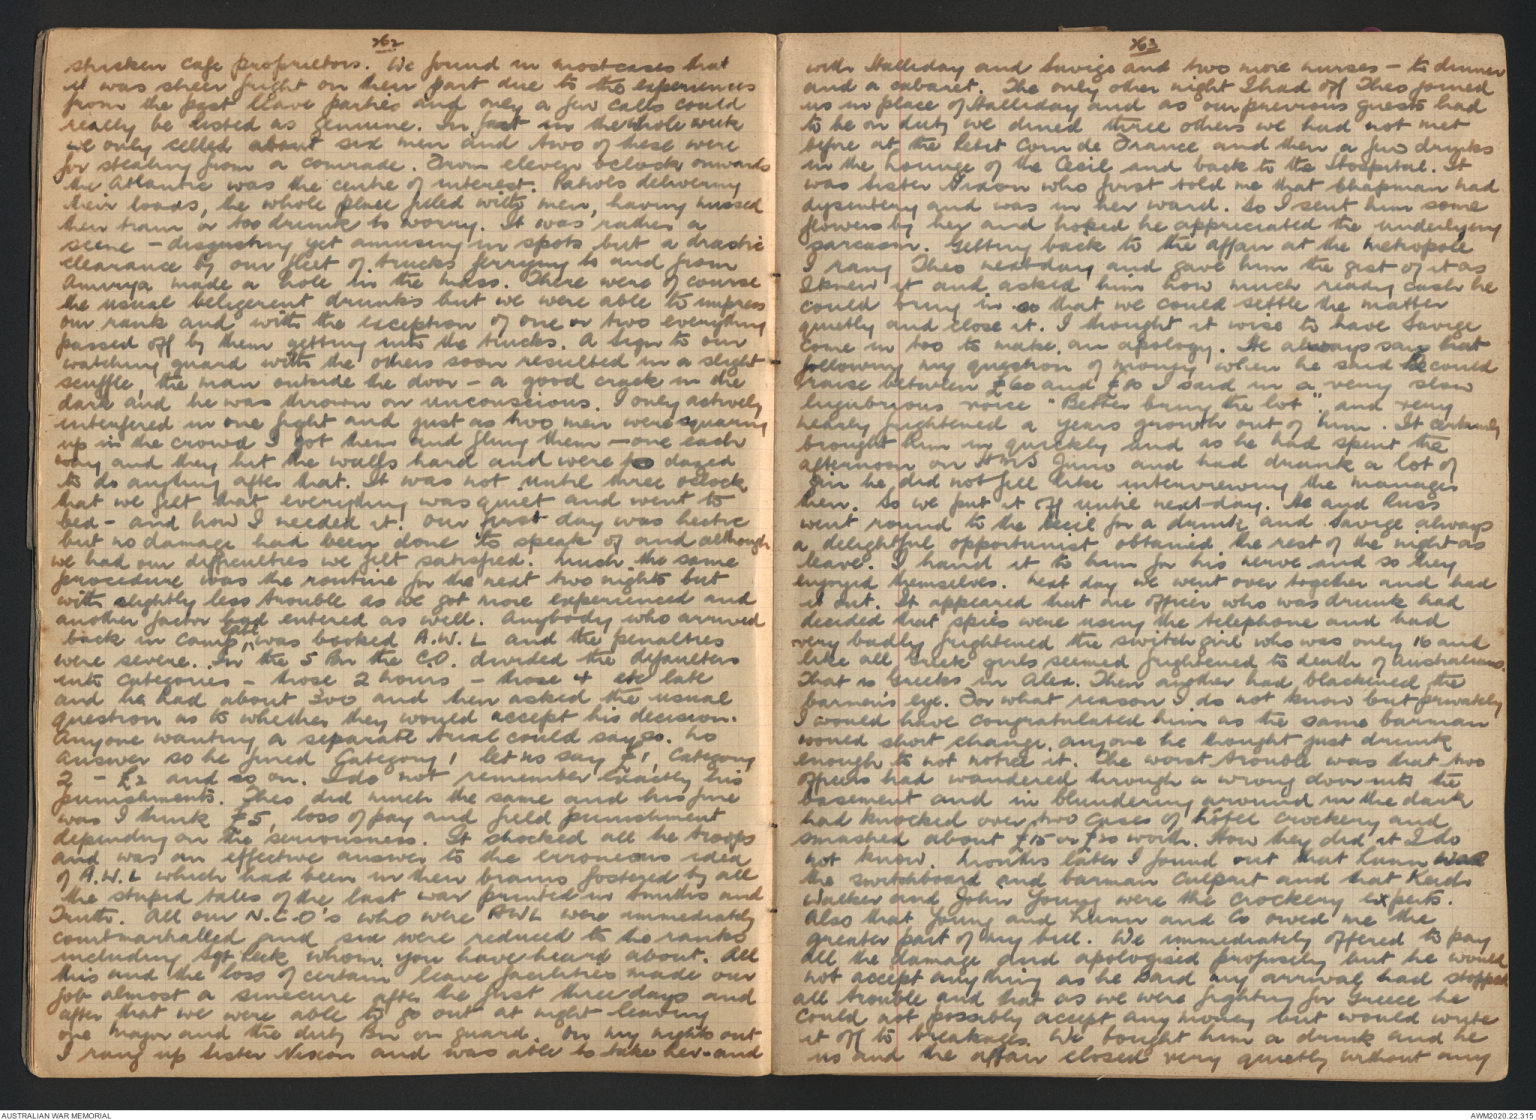 262
stricken cafe proprietors. We found in most cases that
it was sheer fright on their part due to the experiences
from the past leave parties and only a few calls could
really be listed as genuine. In fact in the whole week
we only celled about six men and two of these were
for stealing from a comrade. From eleven oclock onwards
the Atlantic was the centre of interest. Patrols delivering
their loads, the whole place filled with men, having missed
their train or too drunk to worry. It was rather a
scene - disgusting yet amusing in spots but a drastic
clearance by our fleet of trucks ferrying to and from
Amiriya made a hole in the mass. There were of course
the usual beligerent drunks but we were able to impress
our rank and with the exception of one or two everything
passed off by them getting into the trucks. A sign to our
watching guard with the others soon resulted in a slight
scuffle, the man outside the door - a good crack in the
dark and he was thrown on unconscious. I only actively
interfered in one fight and just as two men were squaring
up in the crowd I got them and flung them - one each
way and they hit the walls hard and were too dazed
to do anything after that. It was not until three oclock
that we felt that everything was quiet and went to
bed - and how I needed it. Our first day was hectic
but no damage had been done to speak of and although
we had our difficulties we felt satisfied. Much the same
procedure was the routine for the next two nights but
with slightly less trouble as we got more experienced and
another factor had entered as well. Anybody who arrived
back in camp late was booked A.W.L and the penalties
were severe. In the 5 Bn the C.O. divided the defaulters
into categories - those 2 hours - those 4 etc late
and he had about 300 and then asked the usual
question as to whether they would accept his decision.
Anyone wanting a separate trial could say so. No
answer so he fined Category 1 let us say £1, Category
2 - £2 and so on. I do not remember exactly his
punishments. Theo did much the same and his fine
was I think £5, loss of pay and field punishment
depending on the seriousness. It shocked all the troops
and was an effective answer to the erroneous idea
of A.W.L which had been in their brains fostered by all
the stupid tales of the last war printed in Smiths and
Truth. All our N.C.O's who were AWL were immediately
courtmarshalled and six were reduced to the ranks
including Sgt Leek whom you have heard about. All
this and the loss of certain leave facilities made our
job almost a sinecure after the first three days and
after that we were able to go out at night leaving
one major and the duty Bn on guard. On my nights out
I rang up Sister Nixon and was able to take her - and
263
with Halliday and Savige and two more nurses - to dinner
and a cabaret. The only other night I had off Theo joined
us in place of Halliday and as our previous guests had
to be on duty we dined three others we had not met
before at the Petit Coin de France and then a few drinks
in the lounge of the Cecil and back to the Hospital. It
was Sister Nixon who first told me that Chapman had
dysentery and was in her ward. So I sent him some
flowers by her and hoped he appreciated the underlying
sarcasm. Getting back to the affair at the Metropole
I rang Theo next day and gave him the gist of it as
I knew it and asked him how much ready cash he
could bring in so that we could settle the matter
quietly and close it. I thought it wise to have Savige
come in too to make an apology. He always says that
following my question of money when he said he could
raise between £60 and £80 I said in a very slow
lugubrious voice "Better bring the lot" and very
nearly frightened a years growth out of him. It certainly
brought him in quickly and as he had spent the
afternoon on HMS Juno and had drunk a lot of
gin he did not feel like interviewing the manager
then. So we put it off until next day. He and Russ
went round to the Cecil for a drink and Savige always
a delightful opportunist obtained the rest of the night as
leave. I hand it to him for his nerve and so they
enjoyed themselves. Next day we went over together and had
it out. It appeared that one officer who was drunk had
decided that spies were using the telephone and had
very badly frightened the switch girl who was only 16 and
like all Greek girls seemed frightened to death of Australians.
That is Greeks in Alex. Then another had blackened the
barman's eye. For what reason I do not know but privately
I would have congratulated him as the same barman
would short change anyone he thought just drunk
enough to not notice it. The worst trouble was that two
officers had wandered through a wrong door into the
basement and in blundering around in the dark
had knocked over two cases of hotel crockery and
smashed about £15 or £20 worth. How they did it I do
not know. Months later I found out that Lunn was
the switchboard and barman culprit and that Keith
Walker and John Young were the crockery experts.
Also that Young and Lunn and Co owed me the
greater part of my bill. We immediately offered to pay
all the damage and apologised profusely but he would
not accept anything as he said my arrival had stopped
all trouble and that as we were fighting for Greece he
could not possibly accept any money but would write
it off to breakages. We bought him a drink and he
us and the affair closed very quietly without any
AUSTRALIAN WAR MEMORIAL
AWM2020.22.315